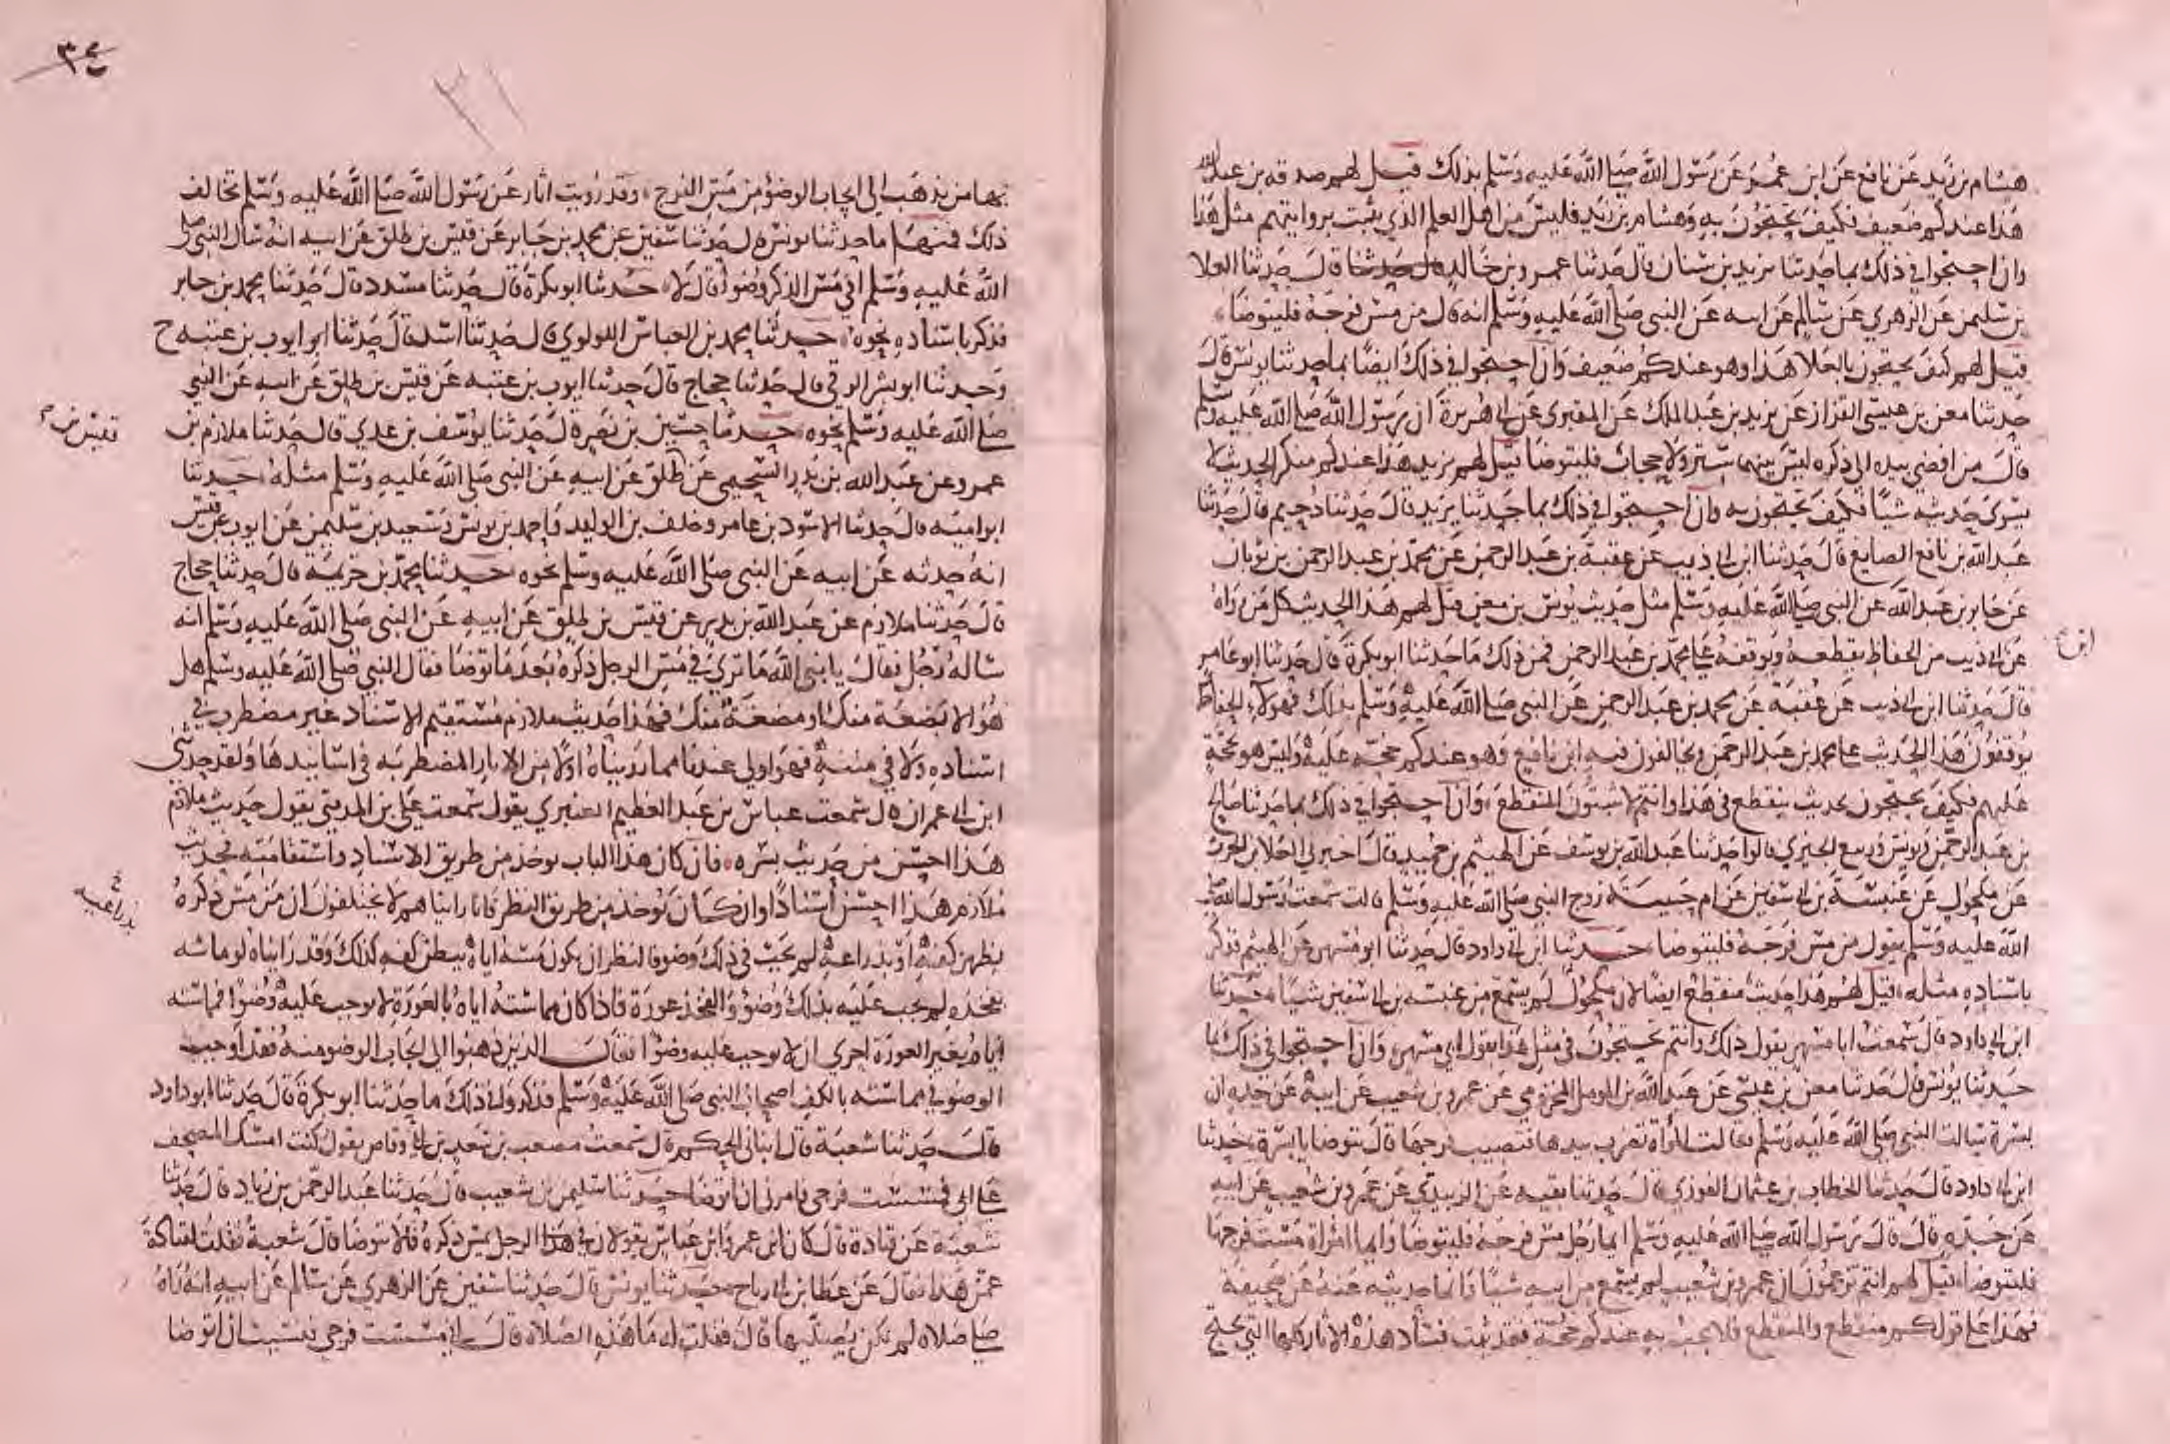 هشام بن زيد عن نافع عن ابن عمر عن رسول الله صلى الله عليه وسلم بذلك قيل لهم صدقه بن عبد الله
هذا عندكم ضعيف فكيف تحتجون به وهشام بن زيد فليس من اهل العلم الذي يثبت بروايتهم مثل هذا
وان احتجوا في ذلك بما حدثنا يزيد بن سنان قال حدثنا عمرو بن خالد قال حدثنا العلا
بن سليمن عن الزهري عن سالم عن ابيه عن النبي صلى الله عليه وسلم انه قال من مس فرجه فليتوضا
قيل لهم كيف تحتجون بالعلا هذا وهو عندكم ضعيف وان احتجوا في ذلك ايضا بما حدثنا يونس قال
حدثنا معن بن عيسى القزاز عن يزيد بن عبد الملك عن المقبري عن ابي هريرة ان رسول الله صلى الله عليه وسلم
قال من افضى بيده الى ذكره ليس بينهما ستر ولا حجاب فليتوضا قيل لهم يزيد هذا عندكم منكر الحديث لا
يسوى حديثه شيا فكيف تحتجون به وان احتجوا في ذلك بما حدثنا يزيد قال حدثنا دحيم قال حدثنا
عبد الله بن نافع الصايغ قال حدثنا ابن ابي ذيب عن عقبة بن عبد الرحمن عن محمد بن عبد الرحمن بن ثوبان
عن جابر بن عبد الله عن النبي صلى الله عليه وسلم مثل حديث يونس بن معن قيل لهم هذا الحديث كل من رواه
عن ابي ذيب من الحفاظ يقطعه ويوقفه على محمد بن عبد الرحمن فمن ذلك ما حدثنا ابو بكرة قال حدثنا ابو عامر
ابن
قال حدثنا ابن ابي ذيب عن عقبة عن محمد بن عبد الرحمن عن النبي صلى الله عليه وسلم بذلك فهولاء الحفاظ
يوقفون هذا الحديث على محمد بن عبد الرحمن ويخالفون فيه ابن نافع وهو عندكم حجة عليه وليس هو بحجة
عليهم فكيف تحتجون بحديث منقطع في هذا وانتم لا تثبتون المنقطع وان احتجوا في ذلك بما حدثنا صالح
بن عبد الرحمن ويونس وربيع الجيزي قالوا حدثنا عبد الله بن يوسف عن الهيثم بن حميد قال اخبرني العلا بن الحرث
عن مكحول عن عنبسة بن ابي سفين عن ام حبيبة زوج النبي صلى الله عليه وسلم قالت سمعت رسول الله صلى
الله عليه وسلم يقول من مس فرجه فليتوضا حدثنا ابن ابي داود قال حدثنا ابو مسهر عن الهيثم فذكر
باسناده مثله قيل لهم هذا حديث منقطع ايضا لان مكحول لم يسمع من عنبسه بن ابي سفين شيا حدثنا
ابن ابي داود قال سمعت ابا مسهر يقول ذلك وانتم تحتجون في مثل هذا بقول ابي مسهر وان احتجوا في ذلك بما
حدثنا يونس قال حدثنا معن بن عيسى عن عبد الله بن المومل المخزومي عن عمرو بن شعيب عن ابيه عن جده ان
بسرة سالت النبي صلى الله عليه وسلم فقالت المراة تضرب بيدها فتصيب فرجها قال تتوضا يا بسرة حدثنا
ابن ابي داود قال حدثنا الخطاب بن عثمان الفوزي قال حدثنا بقيه عن الزبيدي عن عمرو بن شعيب عن ابيه
عن جده قال قال رسول الله صلى الله عليه وسلم ايما رجل مس فرجه فليتوضا وايما امراة مست فرجها
فلتتوضا قيل لهم انتم تزعمون ان عمرو بن شعيب لم يسمع من ابيه شيا وانما حديثه عنه عن صحيفة
فهذا على قولكم منقطع والمنقطع فلا يجب به عندكم حجة فقد ثبت فساد هذه الاثار كلها التي يحتج
٣٤
٣١
بها من يذهب الى ايجاب الوضو من مس الفرج وقد رويت اثار عن رسول الله صلى الله عليه وسلم تخالف
ذلك فمنها ما حدثنا يونس قال حدثنا سفين عن محمد بن جابر عن قيس بن طلق عن ابيه انه سال النبي صلى
الله عليه وسلم افي مس الذكر وضوا قال لا حدثنا ابو بكرة قال حدثنا مسدد قال حدثنا محمد بن جابر
فذكر باسناده نحوه حدثنا محمد بن العباس اللولوي قال حدثنا اسد قال حدثنا ابو ايوب بن عتبه ح
وحدثنا ابو بشر الرقي قال حدثنا حجاج قال حدثنا ايوب بن عتبه عن قيس بن طلق عن ابيه عن النبي
صلى الله عليه وسلم نحوه حدثنا حسين بن نصر قال حدثنا يوسف بن عدي قال حدثنا ملازم بن
قيس بن
عمرو عن عبد الله بن بدر السحيمي عن طلق عن ابيه عن النبي صلى الله عليه وسلم مثله حدثنا
ابو اميه قال حدثنا الاسود بن عامر وخلف بن الوليد واحمد بن يونس وسعيد بن سليمن عن ايوب عن قيس
انه حدثه عن ابيه عن النبي صلى الله عليه وسلم نحوه حدثنا محمد بن خزيمه قال حدثنا حجاج
قال حدثنا ملازم عن عبد الله بن بدر عن قيس بن طلق عن ابيه عن النبي صلى الله عليه وسلم انه
ساله رجل فقال يا نبي الله ما ترى في مس الرجل ذكره بعد ما توضا فقال النبي صلى الله عليه وسلم هل
هو الا بضعة منك او مضغة منك فهذا حديث ملازم مستقيم الاسناد غير مضطرب في
اسناده ولا في متنه فهو اولى عندنا مما رويناه اولا من الاثار المضطربه في اسانيدها ولقد حدثني
ابن ابي عمران قال سمعت عباس بن عبد العظيم العنبري يقول سمعت علي بن المديني يقول حديث ملازم
هذا احسن من حديث بسره فان كان هذا الباب يوخذ من طريق الاسناد واستقامته فحديث
ملازم هذا احسن اسنادا وان كان يوخذ من طريق النظر فانا رايناهم لا يختلفون ان من مس ذكره
بذراعيه
بظهر كفه او بذراعه لم يجب في ذلك وضو فالنظر ان يكون مسه اياه ببطن كفه كذلك وقد رايناه لو ماسه
بفخذه لم يجب عليه بذلك وضو والفخذ عورة فاذا كان مماسته اياه بالعورة لا يوجب عليه وضوا فماسته
اياه بغير العورة احرى ان لا يوجب عليه وضوا فقال الذين ذهبوا الى ايجاب الوضو منه فقد اوجب
الوضو في مماسته بالكف اصحاب النبي صلى الله عليه وسلم فذكروا في ذلك ما حدثنا ابو بكرة قال حدثنا ابو داود
قال حدثنا شعبة قال انباني الحكم قال سمعت مصعب بن سعد بن ابي وقاص يقول كنت امسك المصحف
على ابي فمسست فرجي فامرني ان اتوضا حدثنا سليمن بن شعيب قال حدثنا عبد الرحمن بن زياد قال حدثنا
شعبة عن قتادة قال كان ابن عمر وابن عباس يقولان في هذا الرجل يمس ذكره قالا يتوضا قال شعبة فقلت لقتادة
عمن هذا فقال عن عطا بن ابي رباح حدثنا يونس قال حدثنا سفين عن الزهري عن سالم عن ابيه انه راه
صلى صلاة لم تكن يصليها قال فقلت له ما هذه الصلاة قال اني مسست فرجي فنسيت ان اتوضا